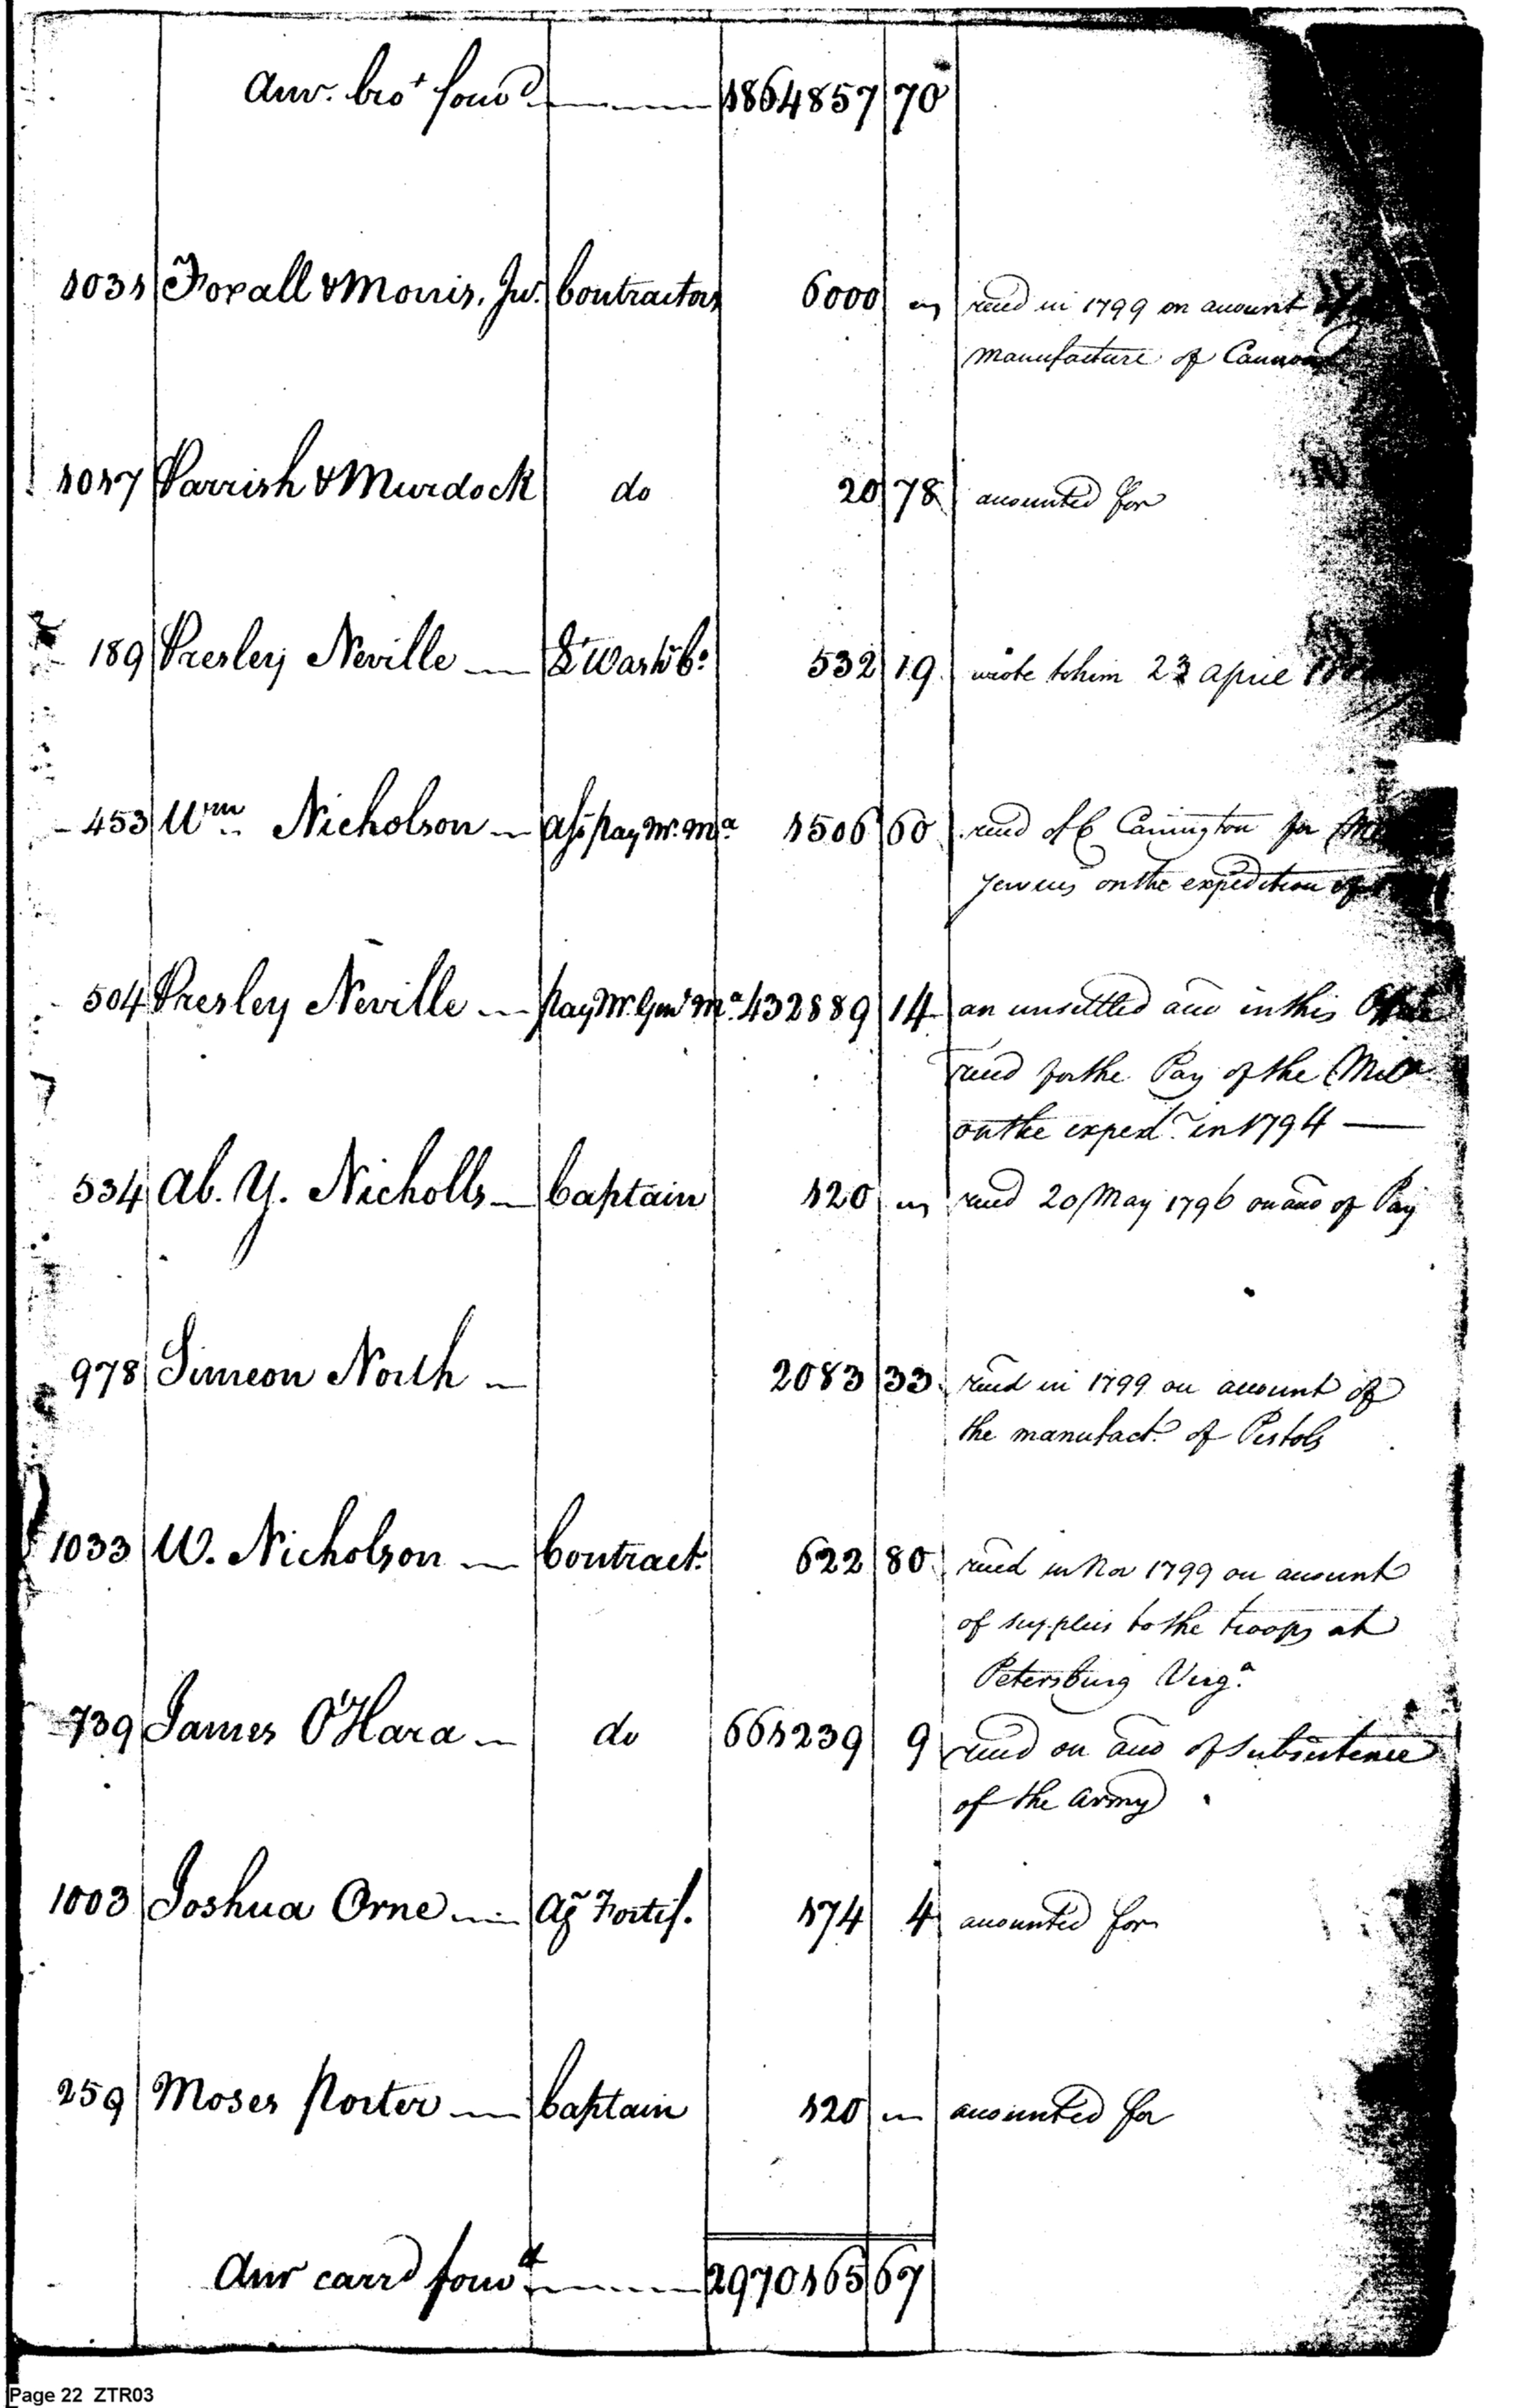 Amt. bro't forwd 1864857 70
1031 Foxall & Morris, Jr. Contractors 6000 " recd in 1799 on account of
manufacture of Cannon
1017 Parrish & Murdock do 20 78 accounted for
189 Presley Neville Lt Wash. Co. 532 19 wrote to him 23 April
453 Wm Nicholson Asst Pay Mr. Ma 1506 60 recd of E Carrington for
services on the expedition of
504 Presley Neville Pay Mr. Genl Ma 432889 14 an unsettled acco in this Office
recd for the Pay of the Mila
on the exped. in 1794
534 Ab. Y. Nicholls Captain 120 " recd 20 May 1796 on acco of Pay
978 Simeon North 2083 33 recd in 1799 on account of
the manufact. of Pistols
1033 W. Nicholson Contract. 622 80 recd in Nov 1799 on account
of supplies to the troops at
Petersburg Virga
739 James O'Hara do 661239 9 recd on acco of subsistence
of the Army
1003 Joshua Orne Ag Fortif. 174 4 accounted for
259 Moses Porter Captain 120 " accounted for
Amt carrd forwd 2970165 67
Page 22 ZTR03